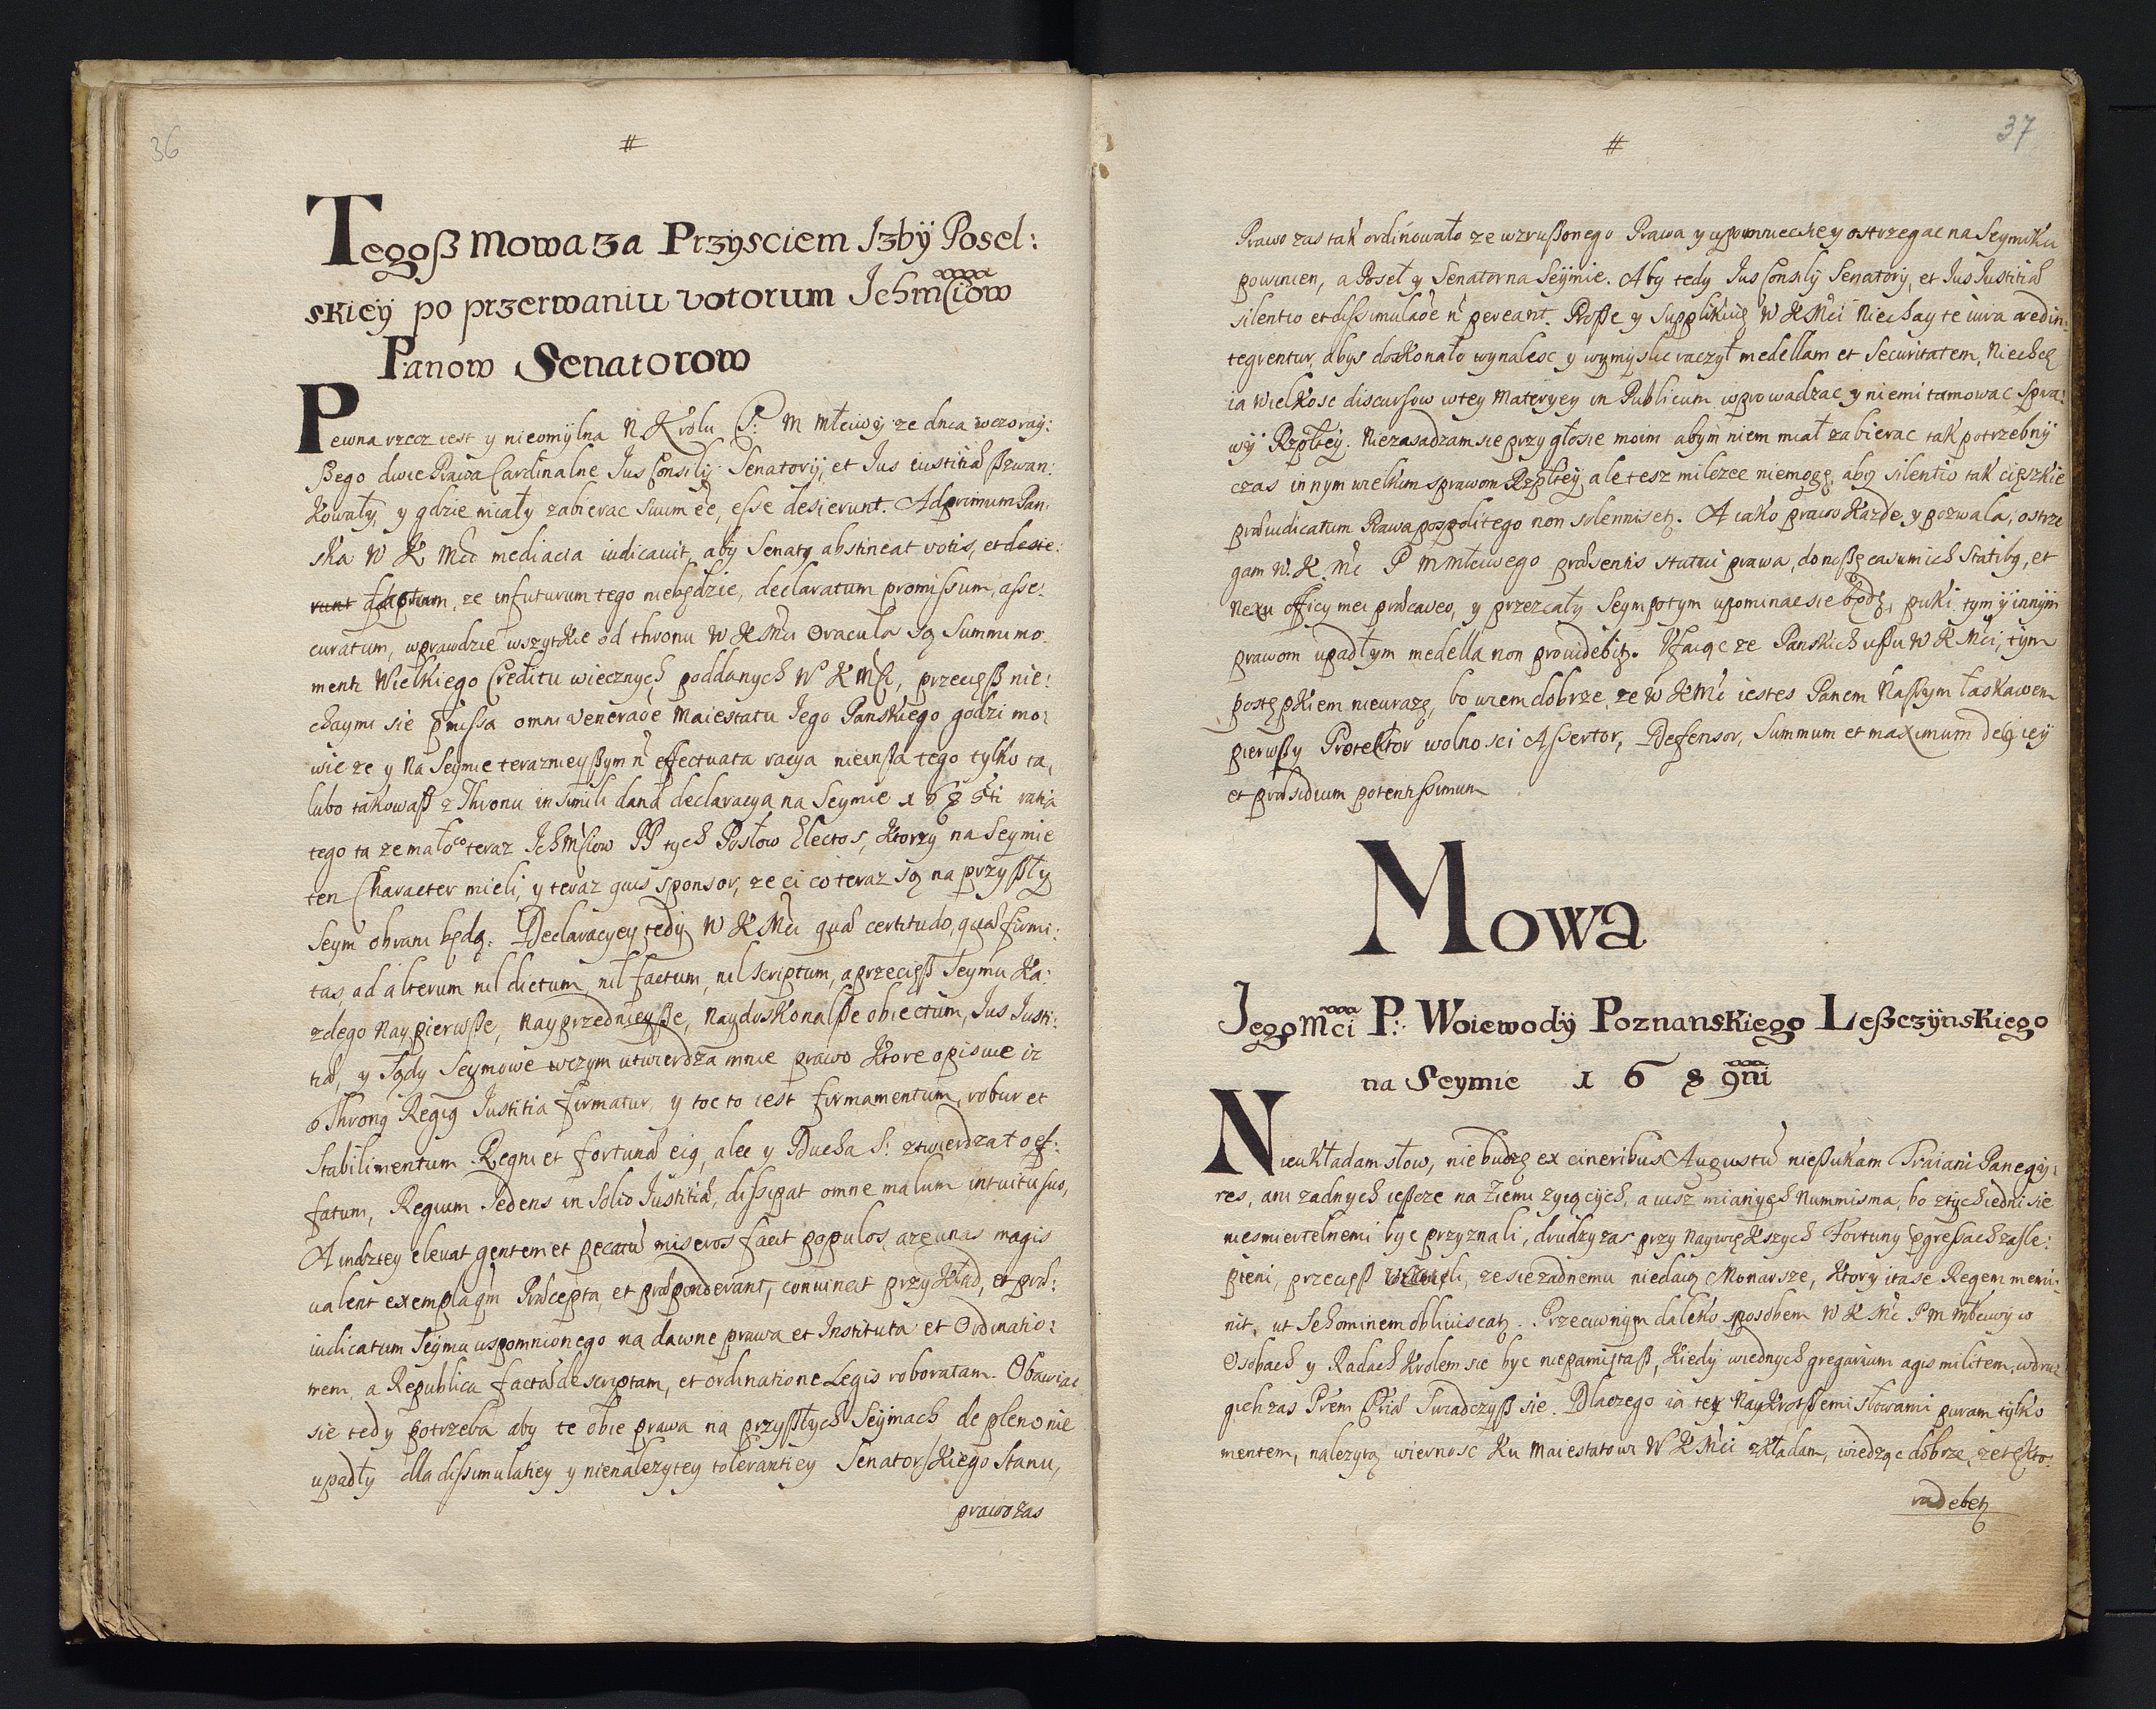 36
#
Tegoß Mowa za Przysciem Jzbÿ Posel:
skieÿ po przerwaniu votorum Jchmciow
Panow Senatorow
Pewna rzecz iest y nieomylna N. Krolu P: M Młciwÿ ze dnia wczoray:
ßego dwie Prawa Cardinalne Jus Consilÿ Senatorÿ, et Jus iustitiæ ßwan:
kowały, y gdzie miały zabierac suum ee, esse desierunt. Ad primum Pan:
ska W K Mci mediacia iudicavit, aby Senatq abstineat votis, et desie:
runt, ze in futurum tego niebędzie, declaratum promissum, asse:
curatum, wprawdzie wszytkie od thronu W K Mci Oracula są summi mo:
menti Wielkiego Creditu wiecznych poddanych W K Mci, przecięß nie:
chaymi sie pmissa omni Veneraoe Maiestatu Jego Panskiego godzi mo:
wic ze y na Seymie teraznieyßym n effectuata racya nieinßa tego tylko ta,
lubo takowaß z Thronu in simili dana declaracya na Seymie 1685ti ratia
tego ta ze mało co teraz JchMciow PP tych Posłow Electos, ktorzy na Seymie
ten Character mieli, y teraz quis sponsor, ze ci co teraz są na przyßły
Seym obrani będą. Declaracyey tedy W K Mci quæ certitudo, quæ firmi:
tas, ad alterum nil dictum, nil factum, nil scriptum, a przecięß seymu ka:
zdego naypierwße, nayprzednieyße, naydoskonalße obiectum, Jus Justi:
tiæ, y Sądy Seymowe wczym utwierdza mnie prawo ktore opisuie iz
Thronq Regiq Justitia firmatur, y toc to iest firmamentum, robur et
Stabilimentum Regni et fortunæ eiq, alec y Ducha S: ztwierdza to ef:
fatum, Regium Sedens in Solio Justitiæ, dissipat omne malum intuitu suo,
A indziey elevat gentem et pecatu miseros facit populos, aze unas magis
valent exempla qm Præcepta, et præponderant, convincit przykład, et præ:
iudicatum seymu wspomnionego na dawne prawa et Instituta et Ordinatio:
nem, a Republica factæ descriptam, et ordinatione Legis roboratam. Obawiac
sie tedy potrzeba aby te obie prawa na przyßłych Seÿmach de pleno nie
upadły dla dissimulatiey y nienalezytey tolerantiey Senatorskiego Stanu,
prawo zas
37
#
Prawo zas tak ordinowało ze wzrußonego Prawa y upomniec sie y ostrzegac na Seymiku
powinien, a Poseł y Senator na Seÿmie. Aby tedy Jus Consilÿ Senatorÿ, et Jus Justitiæ
silentio et dissimulaoe n pereant. Proße y Supplikuię W K Mci niechay te iura redin:
tegrentur, abys doskonało wynalesc y wymyslic raczył medellam et Securitatem, Niechcę
ia wielkosc discursow wtey Materyey in Publicum wprowadzac y niemi tamowac spra:
wÿ Rzpltey. Niezasadzam sie przy głosie moim abym niem miał zabierac tak potrzebnÿ
czas innym wielkim sprawom Rzpltey, ale tesz milczec niemogę, aby silentio tak cięszkie
præiudicatum Prawa pospolitego non solennisetq. A iako prawo kazde, y pozwala, ostrze
gam W. K. Mc P M Młciwego præsentis statui prawa, donoßę casum ich Statibq, et
nexu officÿ mei præcaveo, y przez cały Seym potym upominac sie będę, puki tym ÿ innÿm
prawom upadłym medella non providebitq. Ufaiąc ze Panskich ußu W K Mci, tym
postępkiem nieurazę, bo wiem dobrze, ze W K Mc iestes Panem Naßym łaskawem
pierwßy Protektor wolnosci Assertor, Defensor, Summum et maximum decq iey
et præsidium potentissimum
Mowa
JegoMci P: Woiewodÿ Poznanskiego Leßczÿnskiego
na Seymie 1689ni
Nieukładam słow, niebudzę ex cineribus Augustu nießukam Traiani Panegÿ:
res, ani zadnych ießcze na Ziemi zyiącÿch, a iusz mianÿch Nummisma, bo ztych iedni sie
niesmiertelnemi byc przyznali, drudzy zas przy naywiększych Fortuny pgressach zasle:
pieni, przecięß, ze sie zadnemu niedaią Monarsze, ktory ita se Regem memi:
nit, ut se hominem obliviscatq. Przeciwnym daleko sposobem W K Mc P M Młciwÿ w
Osobach y Radach krolem sie byc niepamiętaß, kiedÿ wiednych gregarium agis militem, wdru:
gich zas Prem Priæ Swiadczyß sie. Dlaczego ia tey naykrotßemi słowami puram tylko
mentem, nalezytą wiernosc ku Maiestatowi W K Mci zkładam, wiedząc dobrze, ze tę kto:
ra debetq